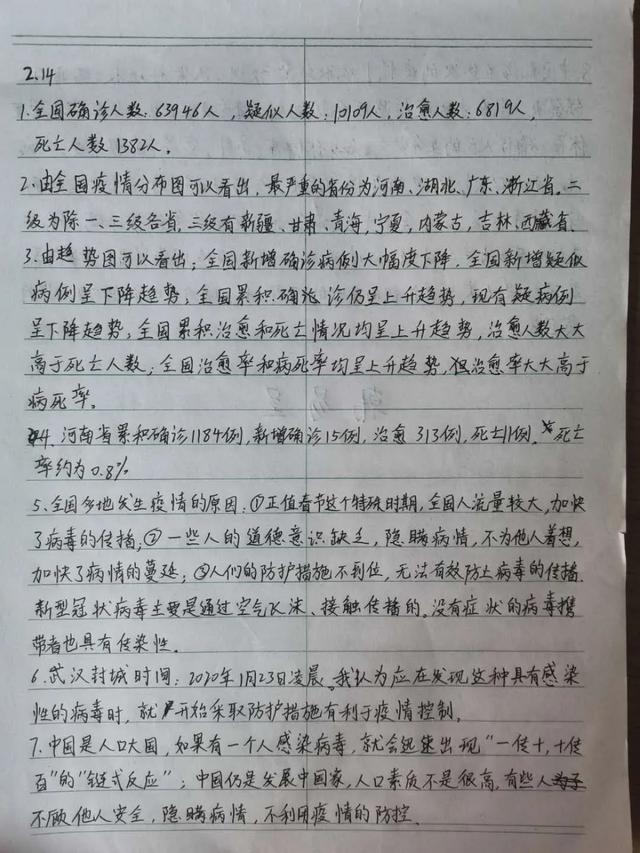 2.14
1.全国确诊人数：63946人，疑似人数：10109人，治愈人数：6819人，
死亡人数1382人。
2.由全国疫情分布图可以看出，最严重的省份为河南、湖北、广东、浙江省。二
级为除一、三级各省，三级有新疆、甘肃、青海，宁夏，内蒙古，吉林、西藏省.
3.由趋势图可以看出；全国新增确诊病例大幅度下降，全国新增疑似
病例呈下降趋势；全国累积确诊仍呈上升趋势，现有疑病例
呈下降趋势；全国累积治愈和死亡情况均呈上升趋势，治愈人数大大
高于死亡人数；全国治愈率和病死率均呈上升趋势，但治愈率大大高于
病死率。
4.河南省累积确诊1184例，新增确诊15例，治愈313例，死亡11例.死亡
率约为0.8%
5.全国多地发生疫情的原因：①正值春节这个特殊时期，全国人流量较大，加快
了病毒的传播，②一些人的道德意识缺乏，隐瞒病情，不为他人着想，
加快了病情的蔓延；③人们的防护措施不到位，无法有效防止病毒的传播.
新型冠状病毒主要是通过空气飞沫、接触传播的。没有症状的病毒携
带者也具有传染性.
6.武汉封城时间：2020年1月23日凌晨。我认为应在发现这种具有感染
性的病毒时，就开始采取防护措施有利于疫情控制.
7.中国是人口大国，如果有一个人感染病毒，就会迅速出现“一传十，十传
百”的“链式反应”；中国仍是发展中国家，人口素质不是很高，有些人
不顾他人安全，隐瞒病情，不利用疫情的防控.